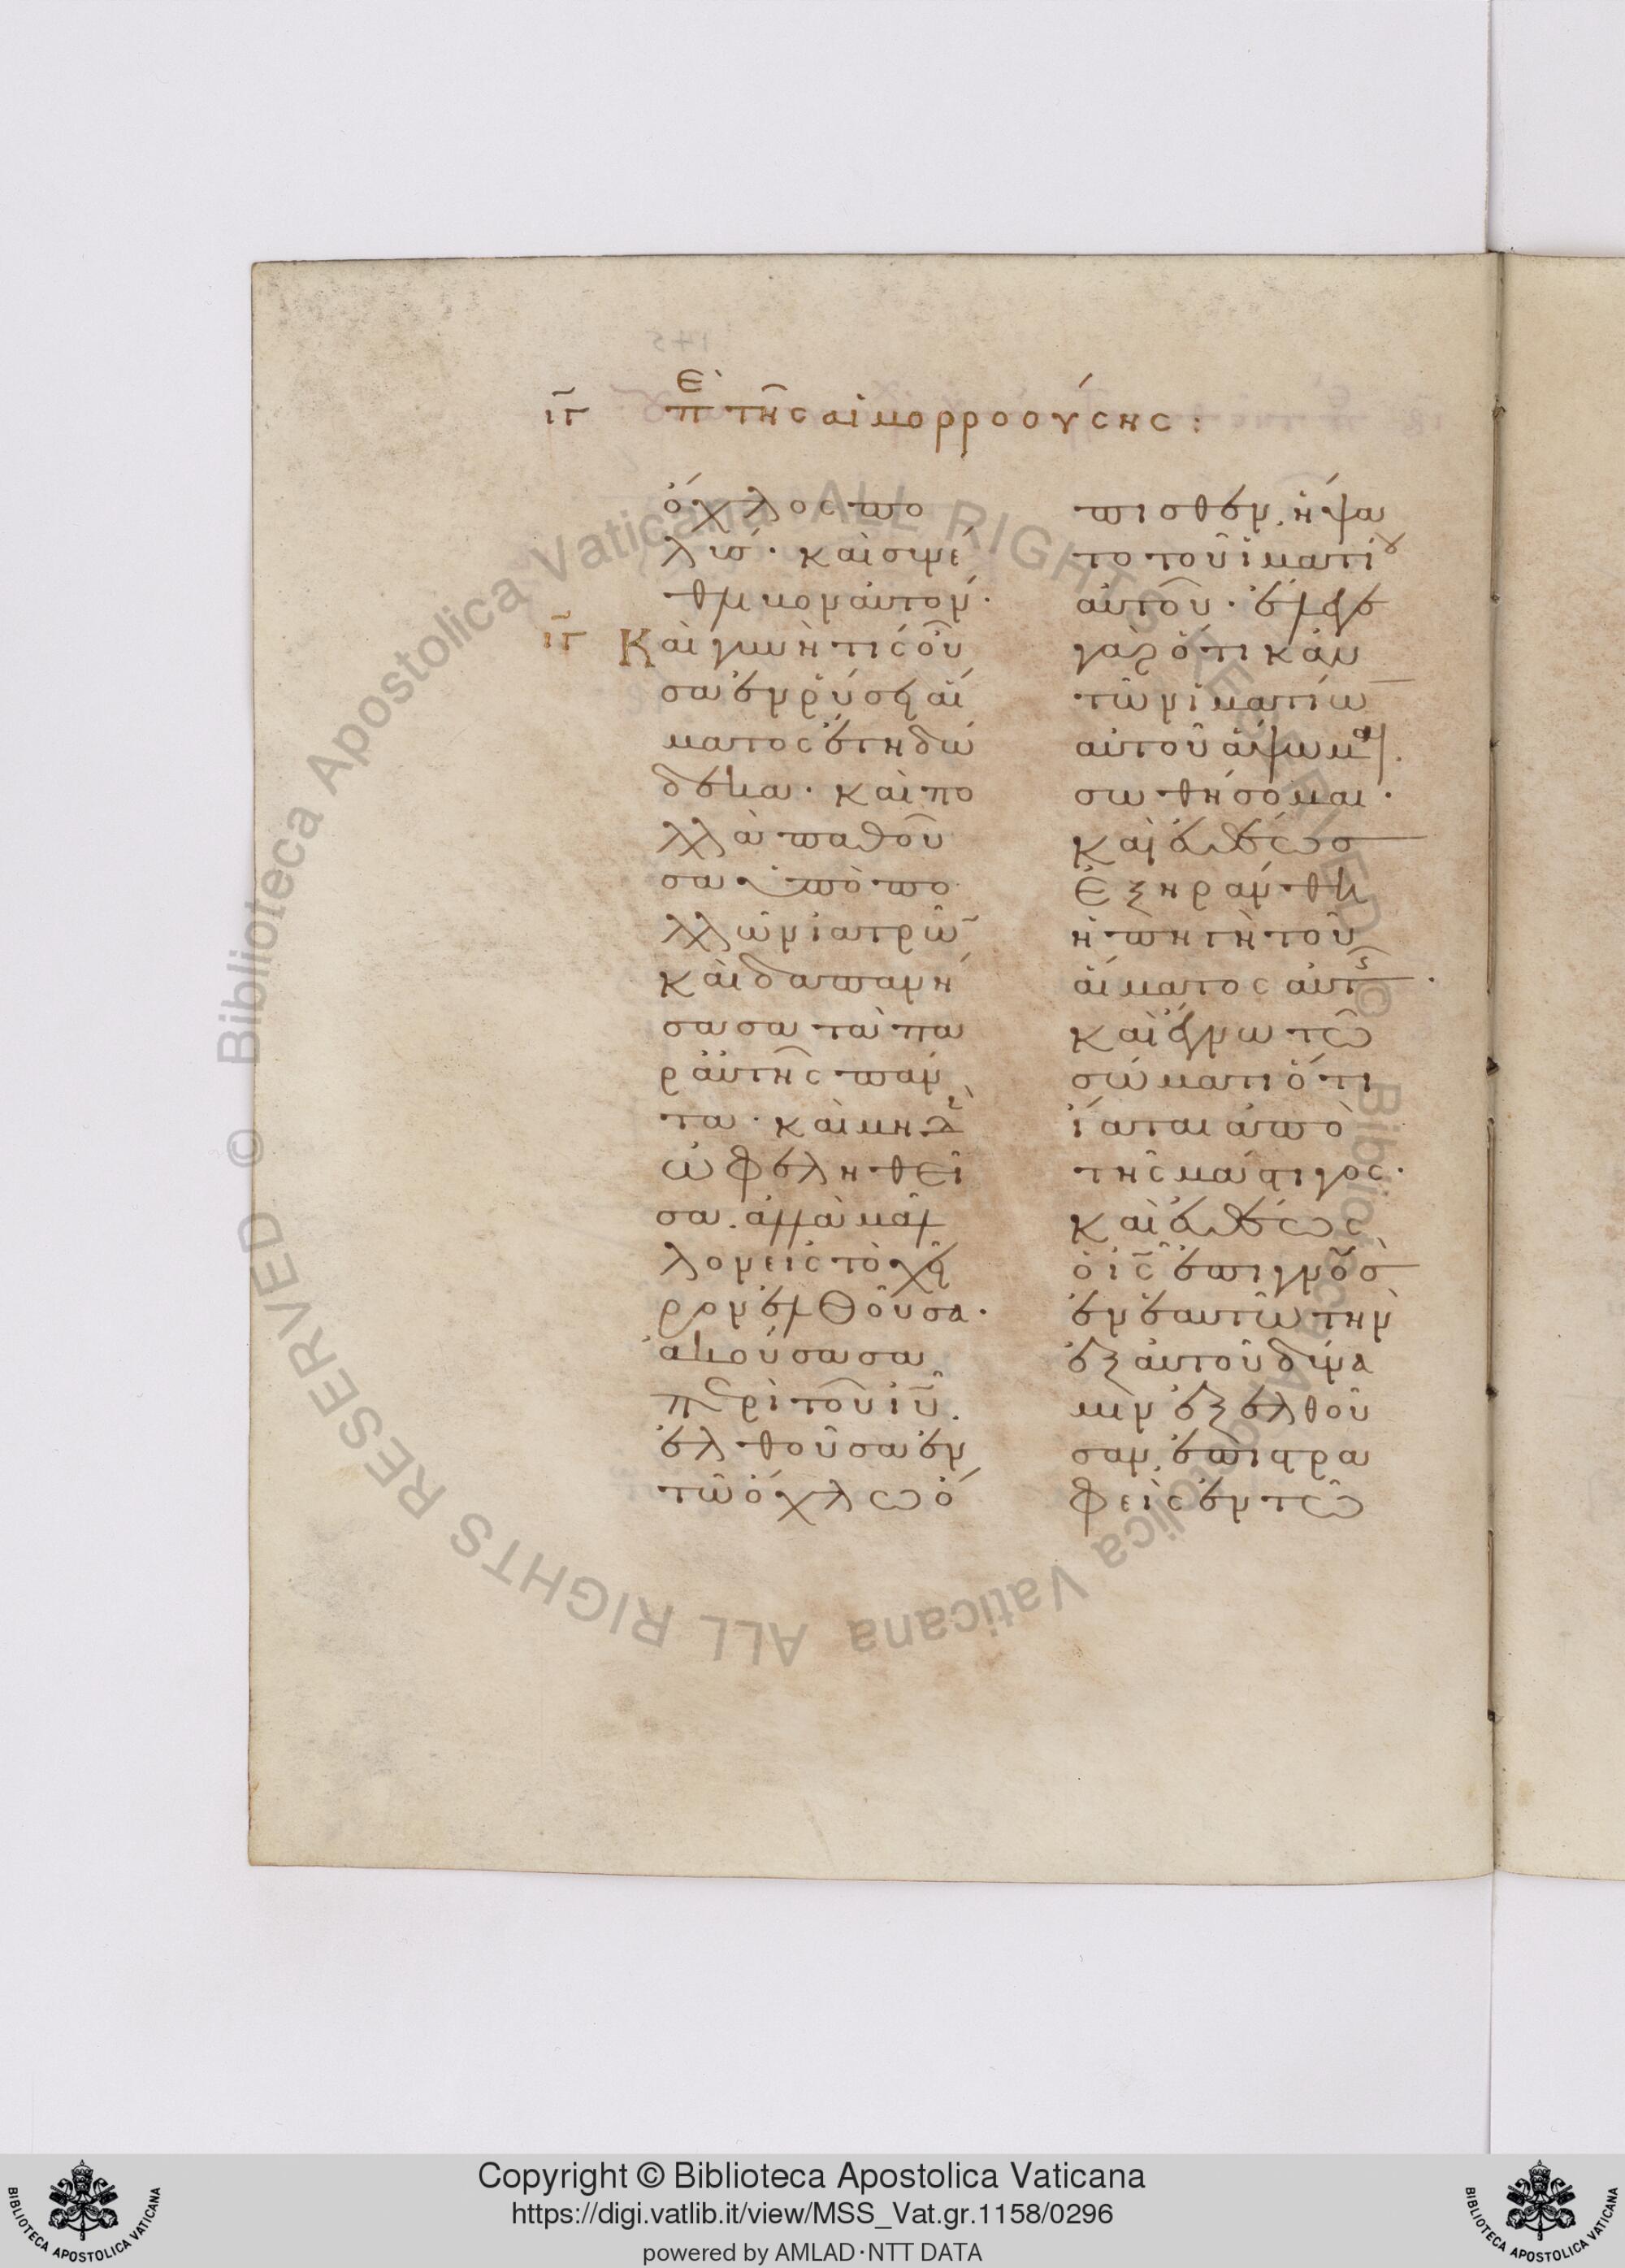 ιγ̅ πὲ τῆς αἱμορροούσης:
ὄχλος πο
λύς· καὶ συνέ
θλιβον αὐτόν·
ιγ̅ Καὶ γυνή τις οὖ
σα ἐν ῥύσει αἵ
ματος ἔτη δώ
δεκα· καὶ πο
λλὰ παθοῦ
σα ὑπὸ πο
λλῶν ἰατρῶ̅
καὶ δαπανή
σασα τὰ πα
ρ' αὐτῆς πάν
τα· καὶ μηδὲν
ὠφεληθεῖ
σα. ἀλλὰ μᾶλ
λον εἰς τὸ χεῖ
ρον ἐλθοῦσα·
ἀκούσασα
περὶ τοῦ ι̅υ̅.
ἐλθοῦσα ἐν
τῷ ὄχλῳ ὄ
πισθεν, ἥψα
το τοῦ ἱματίου
αὐτοῦ· ἔλεγε
γὰρ ὅτι κἂν
τῶν ἱματίω̅
αὐτοῦ ἅψωμαι.
σωθήσομαι·
καὶ εὐθέως
ἐξηράνθη
ἡ πηγὴ τοῦ
αἵματος αὐτῆς·
καὶ ἔγνω τῶ
σώματι ὅτι
ἴαται ἀπὸ
τῆς μάστιγος·
καὶ εὐθέως
ὁ ι̅ς̅ ἐπιγνοὺς
ἐν ἑαυτῶ τὴν
ἐξ αὐτοῦ δύνα
μιν ἐξελθοῦ
σαν, ἐπιστρα
φεὶς ἐν τῶ
Copyright © Biblioteca Apostolica Vaticana
https://digi.vatlib.it/view/MSS_Vat.gr.1158/0296
powered by AMLAD·NTT DATA
BIBLIOTECA APOSTOLICA VATICANA
BIBLIOTECA APOSTOLICA VATICANA
© Biblioteca Apostolica Vaticana ALL RIGHTS RESERVED © Biblioteca Apostolica Vaticana ALL RIGHTS RESERVED